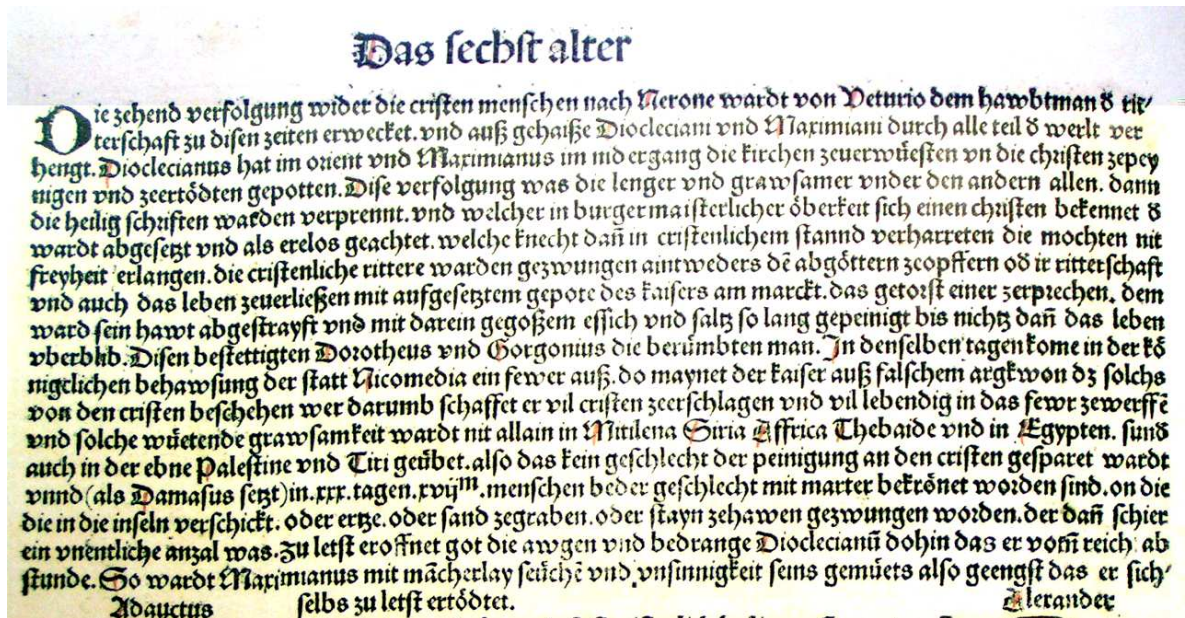 Das sechst alter
Die zehend verfolgung wider die cristen menschen nach Nerone wardt von Veturio dem hawbtman d̕ rit-
terschaft zu disen zeiten erwecket. vnd auß gehaiße Diocleciani vnd Maximiani durch alle teil d̕ werlt ver
hengt. Dioclecianus hat im orient vnd Maximianus im nidergang die kirchen zeuerwůesten vn̄ die christen zepey
nigen vnd zeertödten gepotten. Dise verfolgung was die lenger vnd grawsamer vnder den andern allen. dann
die heilig schriften warden verprennt. vnd welcher in burgermaisterlicher öberkeit sich einen christen bekennet d̕
wardt abgesetzt vnd als erelos geachtet. welche knecht dan̄ in cristenlichem stannd verharreten die mochten nit
freyheit erlangen. die cristenliche rittere warden gezwungen aintweders dē abgöttern zeopffern od̕ ir ritterschaft
vnd auch das leben zeuerließen mit aufgesetztem gepote des kaisers am marckt. das getorst einer zerprechen. dem
ward sein hawt abgestrayft vnd mit darein gegoßem essich vnd saltz so lang gepeinigt bis nichtz dan̄ das leben
vberblib. Disen bestettigten Dorotheus vnd Gorgonius die berůmbten man. In denselben tagen kome in der kö
nigclichen behawsung der statt Nicomedia ein fewer auß. do maynet der kaiser auß falschem argkwon dz solchs
von den cristen beschehen wer darumb schaffet er vil cristen zeerschlagen vnd vil lebendig in das fewr zewerffē
vnd solche wůetende grawsamkeit wardt nit allain in Mitilena Siria Affrica Thebaide vnd in Egypten. sund̕
auch in der ebne Palestine vnd Tiri geůbet. also das kein geschlecht der peinigung an den cristen gesparet wardt
vnnd (als Damasus setzt) in. xxx. tagen. xvijᵐ. menschen beder geschlecht mit marter bekrönet worden sind. on die
die in die inseln verschickt. oder ertze. oder sand zegraben. oder stayn zehawen gezwungen worden. der dan̄ schier
ein vnentliche anzal was. zu letst eroffnet got die awgen vnd bedrange Dioclecianū dohin das er vom̄ reich ab
stunde. So wardt Maximianus mit mācherlay seůchē vnd vnsinnigkeit seins gemůets also geengst das er sich-
selbs zu letst ertödtet.
Adauctus
Alexander